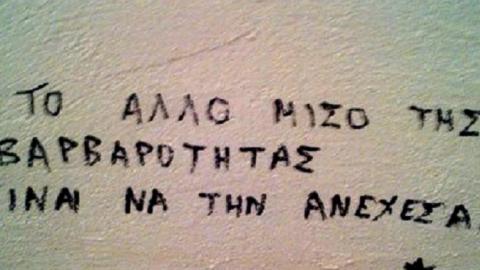 ΤΟ ΑΛΛΟ ΜΙΣΟ ΤΗΣ
ΒΑΡΒΑΡΟΤΗΤΑΣ
ΙΝΑΙ ΝΑ ΤΗΝ ΑΝΕΧΕΣΑ